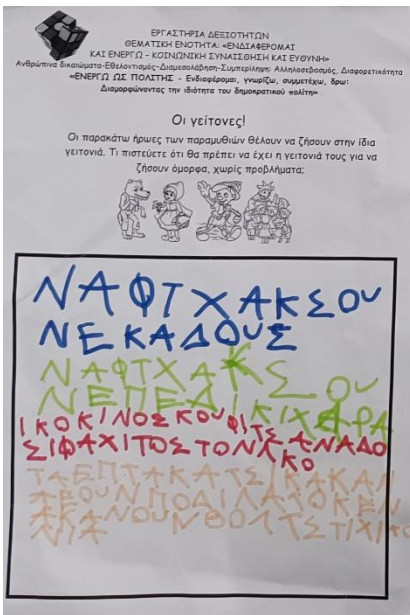 ΕΡΓΑΣΤΗΡΙΑ ΔΕΞΙΟΤΗΤΩΝ
ΘΕΜΑΤΙΚΗ ΕΝΟΤΗΤΑ: «ΕΝΔΙΑΦΕΡΟΜΑΙ
ΚΑΙ ΕΝΕΡΓΩ – ΚΟΙΝΩΝΙΚΗ ΣΥΝΑΙΣΘΗΣΗ ΚΑΙ ΕΥΘΥΝΗ»
Ανθρώπινα δικαιώματα-Εθελοντισμός-Διαμεσολάβηση-Συμπερίληψη: Αλληλοσεβασμός, Διαφορετικότητα
«ΕΝΕΡΓΩ ΩΣ ΠΟΛΙΤΗΣ - Ενδιαφέρομαι, γνωρίζω, συμμετέχω, δρω:
Διαμορφώνοντας την ιδιότητα του δημοκρατικού πολίτη»
Οι γείτονες!
Οι παρακάτω ήρωες των παραμυθιών θέλουν να ζήσουν στην ίδια
γειτονιά. Τι πιστεύετε ότι θα πρέπει να έχει η γειτονιά τους για να
ζήσουν όμορφα, χωρίς προβλήματα;
ΝΑΦΤΧΑΚΣΟΥ
ΝΕΚΑΔΟΥΣ
ΝΑΦΤΧΑΚΣ ΟΥ
ΝΕΠΕΔΙΚΙΧΑΡΑ
ΙΚΟΚΙΝΟΣΚΟΥΦΙΤΣΑΝΑΔΟ
ΣΙΦΑΧΙΤΟΣΤΟΝΛΙΚΟ
ΤΑΕΠΤΑΚΑΤΣΙΚΑΚΑΝ